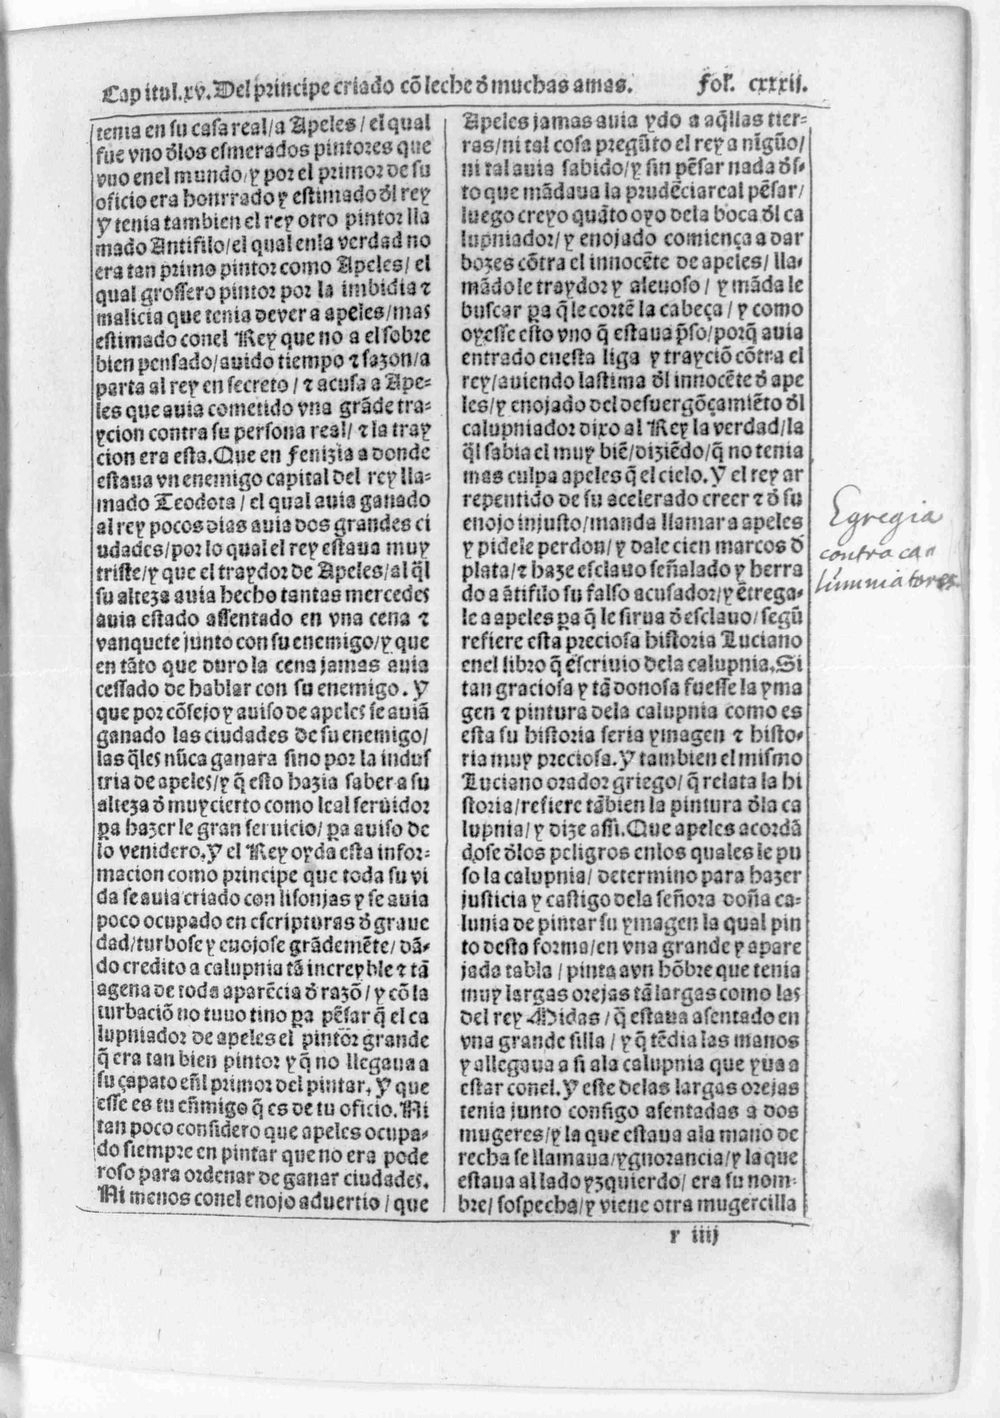 Capitul.xv. Del principe criado cõ leche ð muchas amas. Fol. cxxxij.
tenia en su casa real/a Apeles/el qual
fue vno ðlos esmerados pintores que
vuo enel mundo/y por el primor de su
oficio era honrrado y estimado ðl rey
Y tenia tambien el rey otro pintor lla
mado Antifilo/el qual enla verdad no
era tan primo pintor como Apeles/el
qual grossero pintor por la imbidia ⁊
malicia que tenia de ver a apeles/mas
estimado conel Rey que no a el sobre
bien pensado/auido tiempo ⁊ sazon/a
parta al rey en secreto/⁊ acusa a Ape-
les que auia cometido vna grãde tra-
ycion contra su persona real/⁊ la tray
cion era esta. Que en Fenizia a donde
estaua vn enemigo capital del rey lla-
mado Teodota/el qual auia ganado
al rey pocos dias auia dos grandes ci
udades/por lo qual el rey estaua muy
triste/y que el traydor de Apeles/al q̃l
su alteza auia hecho tantas mercedes
auia estado assentado en vna cena ⁊
vanquete junto con su enemigo/y que
en tãto que duro la cena jamas auia
cessado de hablar con su enemigo. Y
que por cõsejo y auiso de apeles se auiã
ganado las ciudades de su enemigo/
las q̃les nũca ganara sino por la indus
tria de apeles/y q̃ esto hazia saber a su
alteza ð muy cierto como leal seruidor
p̱a hazer le gran seruicio/p̱a auiso de
lo venidero. Y el Rey oyda esta infor-
macion como principe que toda su vi
da se auia criado con lisonjas y se auia
poco ocupado en escripturas ð graue
dad/turbose y enojose grãdemẽte/dã-
do credito a calupnia tã increyble ⁊ tã
agena de toda aparẽcia ð razõ/y cõ la
turbaciõ no tuuo tino p̱a pẽsar q̃ el ca
lupniador de apeles el pintor grande
q̃ era tan bien pintor y q̃ no llegaua a
su çapato eñl primor del pintar. Y que
esse es tu eñmigo q̃ es de tu oficio. Ni
tan poco considero que apeles ocupa-
do siempre en pintar que no era pode
roso para ordenar de ganar ciudades.
Ni menos conel enojo aduertio/que
Apeles jamas auia ydo a aq̃llas tier-
ras/ni tal cosa pregũto el rey a nĩgũo/
ni tal auia sabido/y sin pẽsar nada ðs-
to que mãdaua la prudẽcia real pẽsar/
luego creyo quãto oyo dela boca ðl ca
lupniador/y enojado comiença a dar
bozes cõtra el innocẽte de apeles/lla-
mãdole traydor y aleuoso/y mãda le
buscar p̱a q̃ le cortẽ la cabeça/y como
oyesse esto vno q̃ estaua p̃so/porq̃ auia
entrado enesta liga y trayciõ cõtra el
rey/auiendo lastima ðl innocẽte ð ape
les/y enojado del desuergõçamiẽto ðl
calupniador dixo al Rey la verdad/la
q̃l sabia el muy biẽ/diziẽdo/q̃ no tenia
mas culpa apeles q̃ el cielo. Y el rey ar
repentido de su acelerado creer ⁊ ð su
enojo injusto/manda llamar a apeles
y pidele perdon/y dale cien marcos ð
plata/⁊ haze esclauo señalado y herra
do a ãtifilo su falso acusador/y ẽtrega-
le a apeles p̱a q̃ le sirua ð esclauo/segũ
refiere esta preciosa historia Luciano
enel libro q̃ escriuio dela calupnia. Si
tan graciosa y tã donosa fuesse la yma
gen ⁊ pintura dela calupnia como es
esta su historia seria ymagen ⁊ histo-
ria muy preciosa. Y tambien el mismo
Luciano orador griego/q̃ relata la hi
storia/refiere tãbien la pintura ðla ca
lupnia/y dize assi. Que apeles acordã
dose ðlos peligros enlos quales le pu
so la calupnia/determino para hazer
justicia y castigo dela señora doña ca-
lunia de pintar su ymagen la qual pin
to desta forma/en vna grande y apare
jada tabla/pinta a vn hõbre que tenia
muy largas orejas tã largas como las
del rey Midas/q̃ estaua asentado en
vna grande silla/y q̃ tẽdia las manos
y allegaua a si ala calupnia que yua a
estar conel. Y este delas largas orejas
tenia junto consigo asentadas a dos
mugeres/y la que estaua ala mano de
recha se llamaua/ygnorancia/y la que
estaua al lado yzquierdo/era su nom-
bre/sospecha/y viene otra mugercilla
Egregia
contra ca
lumniatores
r iiij